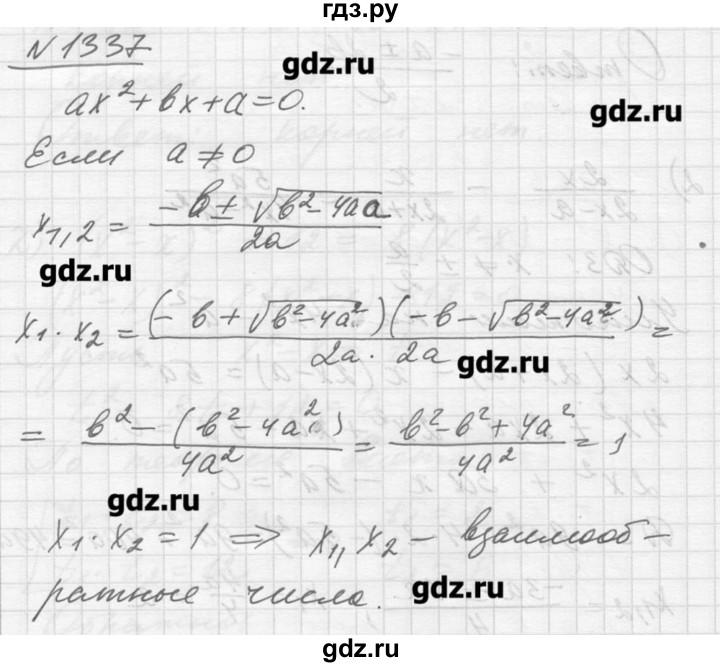 гдз.ру
N 1337
gdz.ru
ax² + bx + a = 0.
gdz.ru
Если a ≠ 0
x₁,₂ = (-b ± √(b² - 4a a)) / 2a
gdz.ru
x₁ · x₂ = (-b + √(b² - 4a²))(-b - √(b² - 4a²)) / 2a · 2a =
gdz.ru
= b² - (b² - 4a²) / 4a² = b² - b² + 4a² / 4a² = 1
gdz.ru
x₁ · x₂ = 1 ⇒ x₁, x₂ - взаимооб-
ратные числа.
gdz.ru
gdz.ru